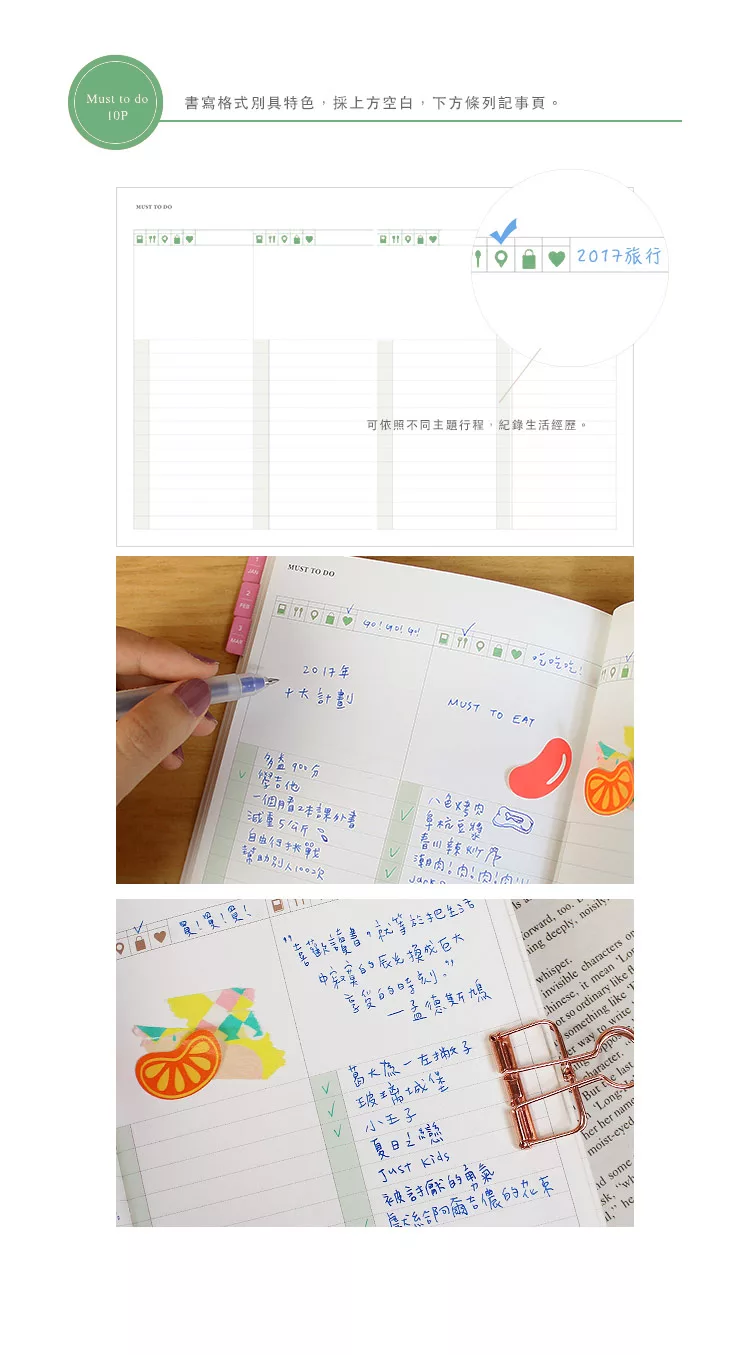 Must to do
10P
書寫格式別具特色，採上方空白，下方條列記事頁。
MUST TO DO
2017旅行
可依照不同主題行程，紀錄生活經歷。
1
JAN
2
FEB
3
MAR
MUST TO DO
GO! GO! GO!
吃吃吃!
2017年
十大計劃
MUST TO EAT
多益900分
學吉他
一個月看2本課外書
減重5公斤
自由行挑戰
幫助別人1000次
八色烤肉
阜杭豆漿
春川辣炒
潮肉!肉!肉!肉!!!
買!買!買!
"喜歡讀書，就等於把生活
中寂寞的辰光換成巨大
享受的時刻。"
—孟德斯鳩
葛大為－左撇子
玻璃城堡
小王子
夏日之戀
Just Kids
被討厭的勇氣
獻給阿爾吉儂的花束
orward, too.
ing deeply, noisily
whisper.
invisible characters
hinese, it mean 'Lo
ot so ordinary like
something like
er way to write
character.
But the last
'Long-
her her name
moist-eyed
nd some
sk, "wh
l," he